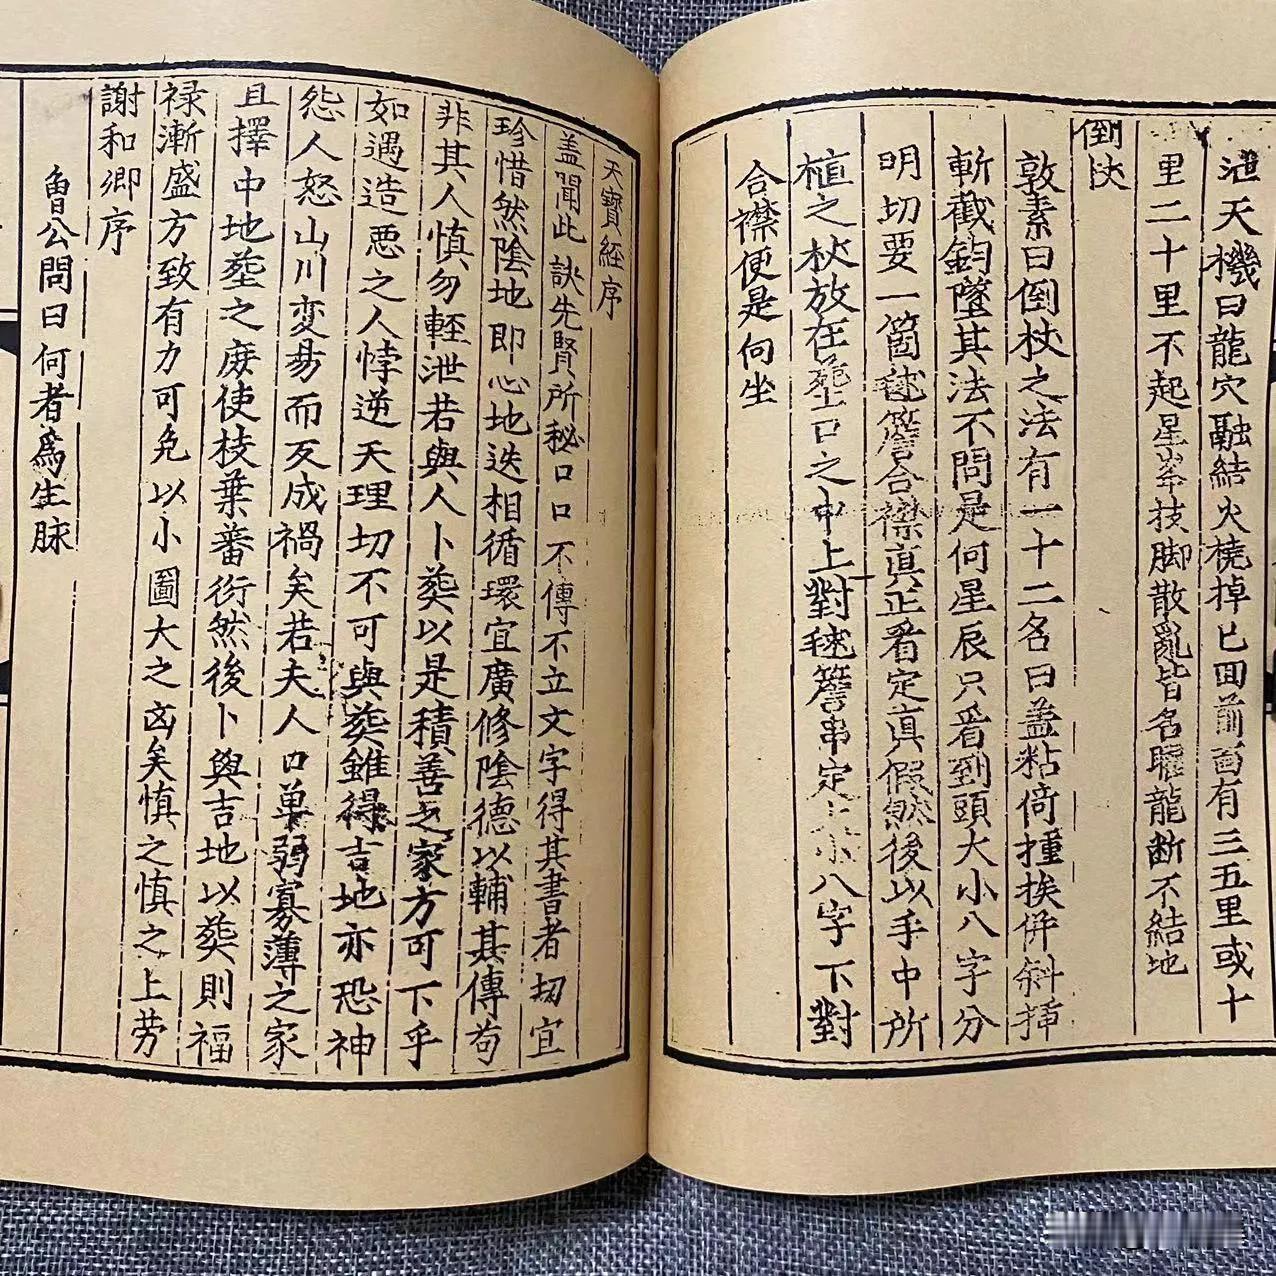 泄天機曰龍穴融結火燒掉已回前面有三五里或十
里二十里不起星峯技脚散亂皆名龍断不結地
倒杖
敦素曰倒杖之法有一十二名曰盖粘倚撞挨併斜揷
斬截釣墜其法不問是何星辰只看到頭大小八字分
明切要一箇毬簷合襟真正看定真假然後以手中所
植之杖放在塟口之中上對毬簷串定八字下對
合襟便是向坐
天寶經序
盖聞此訣先賢所秘口口不傳不立文字得其書者切宜
珍惜然陰地即心地迭相循環宜廣修陰德以輔其傳苟
非其人慎勿輕泄若與人卜葬以是積善之家方可下乎
如遇造惡之人悖逆天理切不可與葬雖得吉地亦恐神
怨人怒山川变易而反成禍矣若夫人口單弱寡薄之家
且擇中地塟之庻使枝葉蕃衍然後卜與吉地以葬則福
禄漸盛方致有力可免以小圖大之凶矣慎之慎之上劳
謝和卿序
魯公問曰何者爲生脉